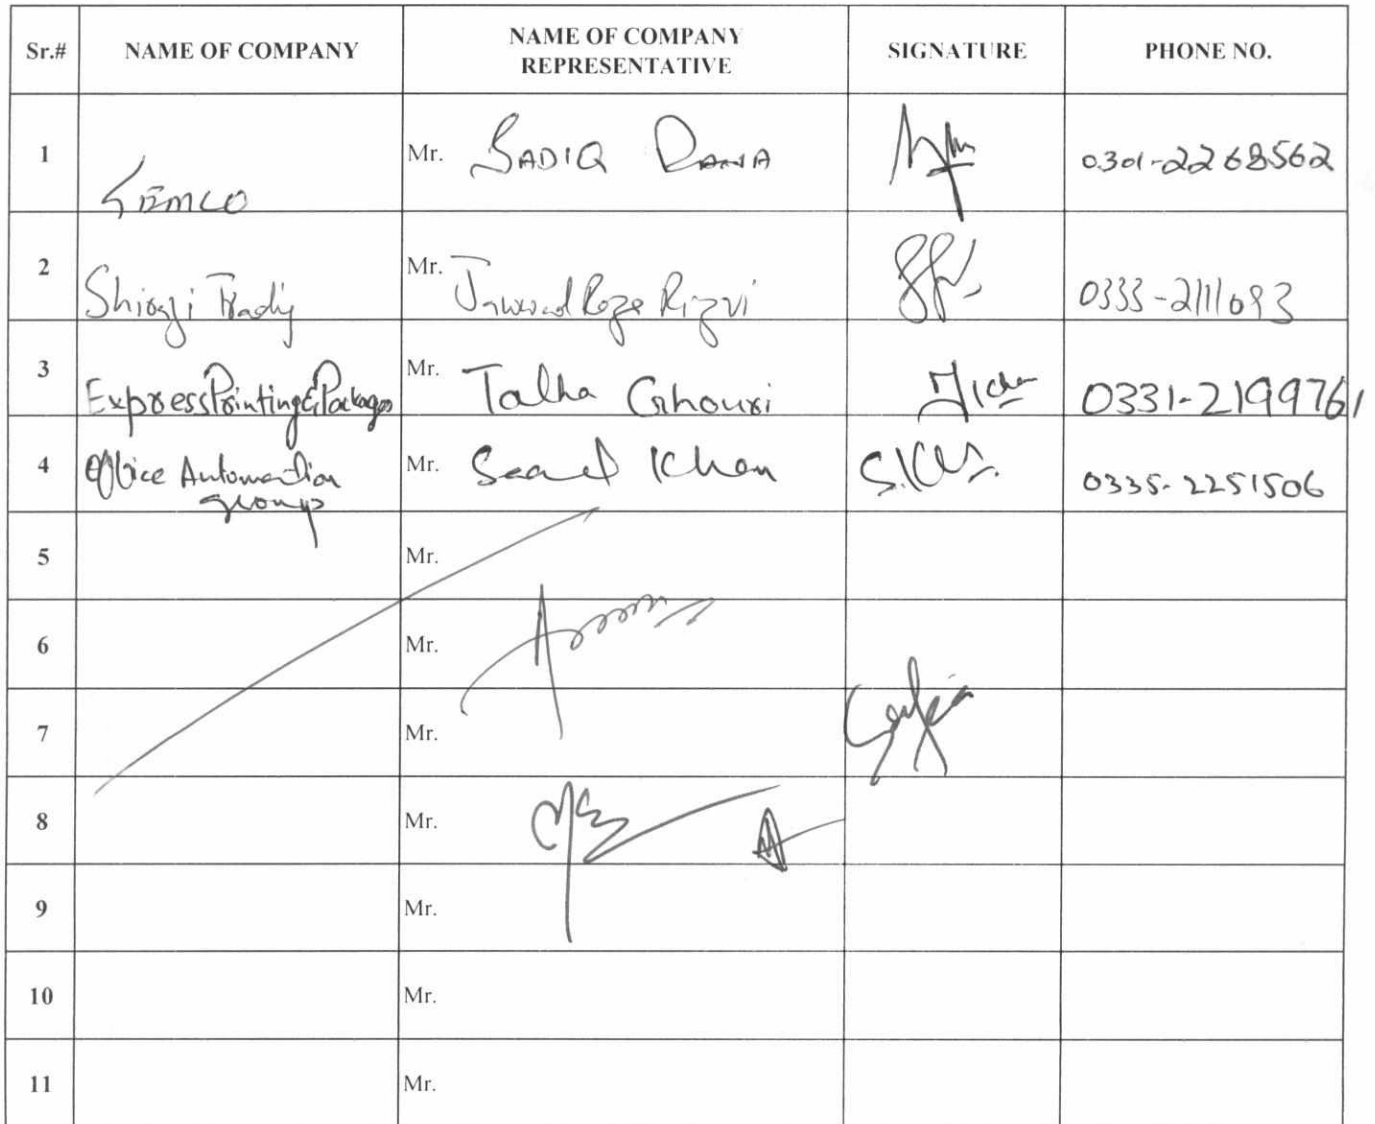 Sr.# NAME OF COMPANY NAME OF COMPANY REPRESENTATIVE SIGNATURE PHONE NO.
1 Mr. SADIQ 0301-2268562
2 Mr. Rizvi 0333-2111093
3 Express Printing & Packages Mr. Talha Ghouri 0331-2199761
4 Office Automation Group Mr. Saad Khan 0335-2251506
5 Mr.
6 Mr.
7 Mr.
8 Mr.
9 Mr.
10 Mr.
11 Mr.